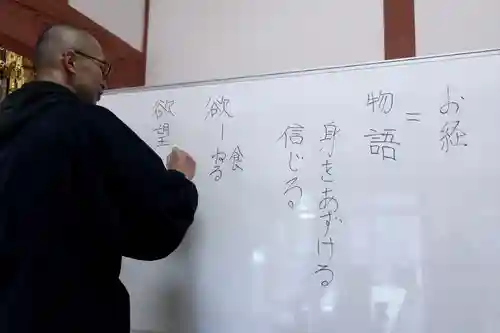 お経
=
物語
身をあずける
信じる。
欲ー食
ねる
欲望